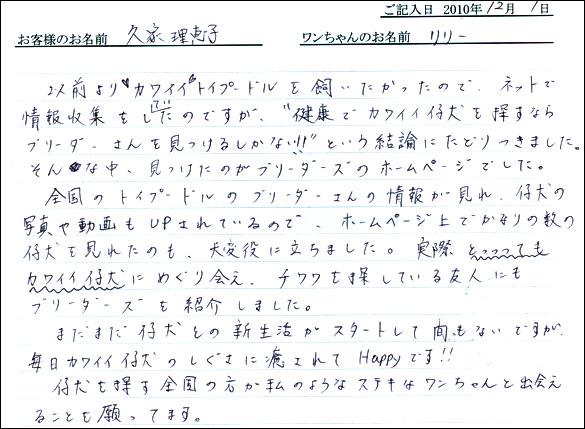 ご記入日 2010年12月1日
お客様のお名前 久家 理恵子 ワンちゃんのお名前 リリー
以前より"カワイイ"トイプードルを飼いたかったので、ネットで
情報収集をしていたのですが、"健康でカワイイ仔犬を探すなら
ブリーダーさんを見つけるしかない!!"という結論にたどりつきました。
そんな中、見つけたのがブリーダーズのホームページでした。
全国のトイプードルのブリーダーさんの情報が見れ、仔犬の
写真や動画もUPされているので、ホームページ上でかなりの数の
仔犬を見れたのも、大変役に立ちました。実際とってっても
カワイイ仔犬にめぐり会え、チワワを探している友人にも
ブリーダーズを紹介しました。
まだまだ仔犬との新生活がスタートして間もないですが、
毎日カワイイ仔犬のしぐさに癒されてHappyです!!
仔犬を探す全国の方が私のようなステキなワンちゃんと出会え
ることを願ってます。